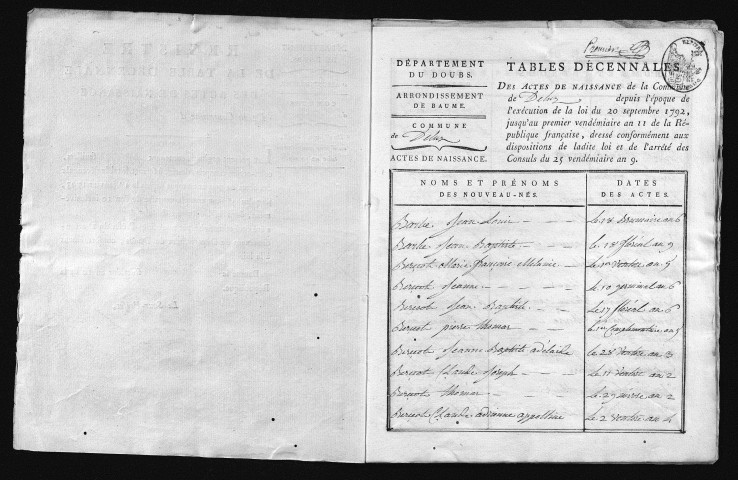 Première
DÉPARTEMENT
DU DOUBS.
ARRONDISSEMENT
DE BAUME.
COMMUNE
de Deluz
ACTES DE NAISSANCE.
TABLES DÉCENNALES
DES ACTES DE NAISSANCE de la Commune
de Deluz depuis l'époque de
l'exécution de la loi du 20 septembre 1792,
jusqu'au premier vendémiaire an 11 de la Ré-
publique française, dressé conformément aux
dispositions de ladite loi et de l'arrêté des
Consuls du 25 vendémiaire an 9.
NOMS ET PRÉNOMS
DES NOUVEAU-NÉS.
DATES
DES ACTES.
Barbe Jean Louis le 18 Brumaire an 6
Barbe Jean Baptiste le 18 floréal an 9
Bercot Marie françoise Melanie Ventose an 5
Bercot Jeanne le 10 germinal an 6
Bercot Jean Baptiste le 17 floréal an 6
Bercot pierre thomas Complementaire an 5
Bercot Jeanne Baptiste adelaide le 28 Ventose an 3
Bercot Claude Joseph le 11 Ventose an 2
Bercot thomas le 29 nivose an 2
Bercot Claude adrienne appolline le 2 Ventose an 4